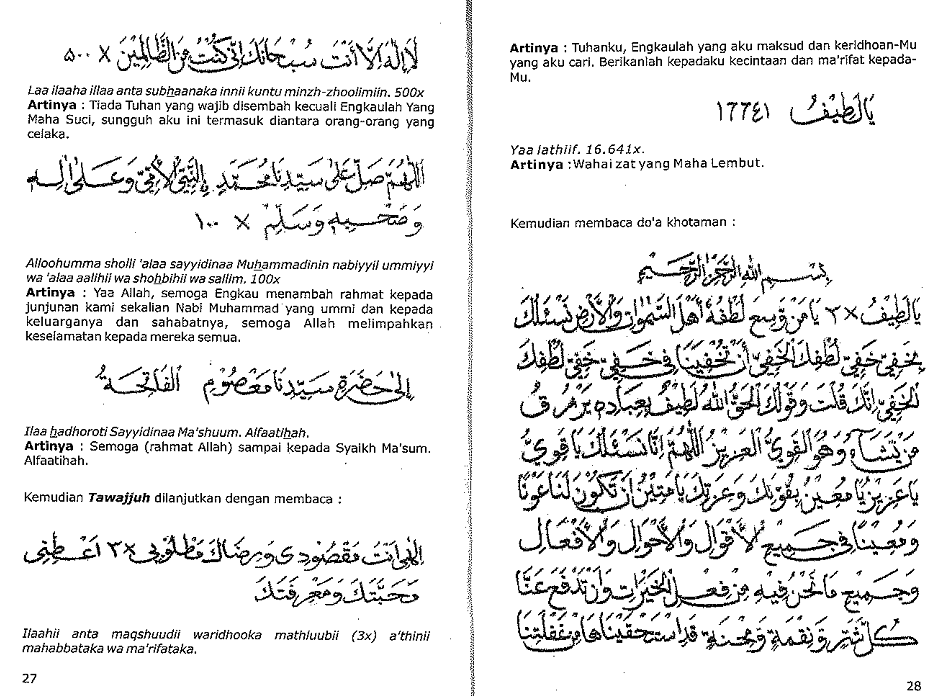 لَا إِلٰهَ إِلَّا أَنْتَ سُبْحَانَكَ إِنِّي كُنْتُ مِنَ الظَّالِمِيْنَ × ٥٠٠
Laa ilaaha illaa anta subhaanaka innii kuntu minzh-zhoolimiin. 500x
Artinya : Tiada Tuhan yang wajib disembah kecuali Engkaulah Yang
Maha Suci, sungguh aku ini termasuk diantara orang-orang yang
celaka.
اَللّٰهُمَّ صَلِّ عَلٰى سَيِّدِنَا مُحَمَّدٍ النَّبِيِّ الْأُمِّيِّ وَعَلٰى اٰلِهِ
وَصَحْبِهِ وَسَلِّمْ × ١٠٠
Alloohumma sholli 'alaa sayyidinaa Muhammadinin nabiyyil ummiyyi
wa 'alaa aalihii wa shohbihii wa sallim. 100x
Artinya : Yaa Allah, semoga Engkau menambah rahmat kepada
junjunan kami sekalian Nabi Muhammad yang ummi dan kepada
keluarganya dan sahabatnya, semoga Allah melimpahkan
keselamatan kepada mereka semua.
إِلٰى حَضْرَةِ سَيِّدِنَا مَعْصُوْمٍ الْفَاتِحَةُ
Ilaa hadhoroti Sayyidinaa Ma'shuum. Alfaatihah.
Artinya : Semoga (rahmat Allah) sampai kepada Syaikh Ma'sum.
Alfaatihah.
Kemudian Tawajjuh dilanjutkan dengan membaca :
إِلٰهِي أَنْتَ مَقْصُوْدِي وَرِضَاكَ مَطْلُوْبِي ×٣ أَعْطِنِي
مَحَبَّتَكَ وَمَعْرِفَتَكَ
Ilaahii anta maqshuudii waridhooka mathluubii (3x) a'thinii
mahabbataka wa ma'rifataka.
27
Artinya : Tuhanku, Engkaulah yang aku maksud dan keridhoan-Mu
yang aku cari. Berikanlah kepadaku kecintaan dan ma'rifat kepada-
Mu.
يَا لَطِيْفُ ١٦٦٤١
Yaa lathiif. 16.641x.
Artinya :Wahai zat yang Maha Lembut.
Kemudian membaca do'a khotaman :
بِسْمِ اللهِ الرَّحْمٰنِ الرَّحِيْمِ
يَا لَطِيْفُ ×٣ يَا مَنْ وَسِعَ لُطْفُهُ أَهْلَ السَّمٰوَاتِ وَالْأَرْضِ نَسْئَلُكَ
بِخَفِيِّ خَفِيِّ لُطْفِكَ الْخَفِيِّ أَنْ تُخْفِيَنَا فِي خَفِيِّ خَفِيِّ لُطْفِكَ
الْخَفِيِّ إِنَّكَ قُلْتَ وَقَوْلُكَ الْحَقُّ اللهُ لَطِيْفٌ بِعِبَادِهِ يَرْزُقُ
مَنْ يَشَآءُ وَهُوَ الْقَوِيُّ الْعَزِيْزُ اَللّٰهُمَّ إِنَّا نَسْئَلُكَ يَا قَوِيُّ
يَا عَزِيْزُ يَا مُعِيْنُ بِقُوَّتِكَ وَعِزَّتِكَ يَا مَتِيْنُ أَنْ تَكُوْنَ لَنَا عَوْنًا
وَمُعِيْنًا فِي جَمِيْعِ الْأَقْوَالِ وَالْأَحْوَالِ وَالْأَفْعَالِ
وَجَمِيْعِ مَا نَحْنُ فِيْهِ مِنْ فِعْلِ الْخَيْرَاتِ وَأَنْ تَدْفَعَ عَنَّا
كُلَّ شَرٍّ وَنِقْمَةٍ وَمِحْنَةٍ قَدِ اسْتَحْقَيْنَاهَا مِنْ غَفْلَتِنَا
28